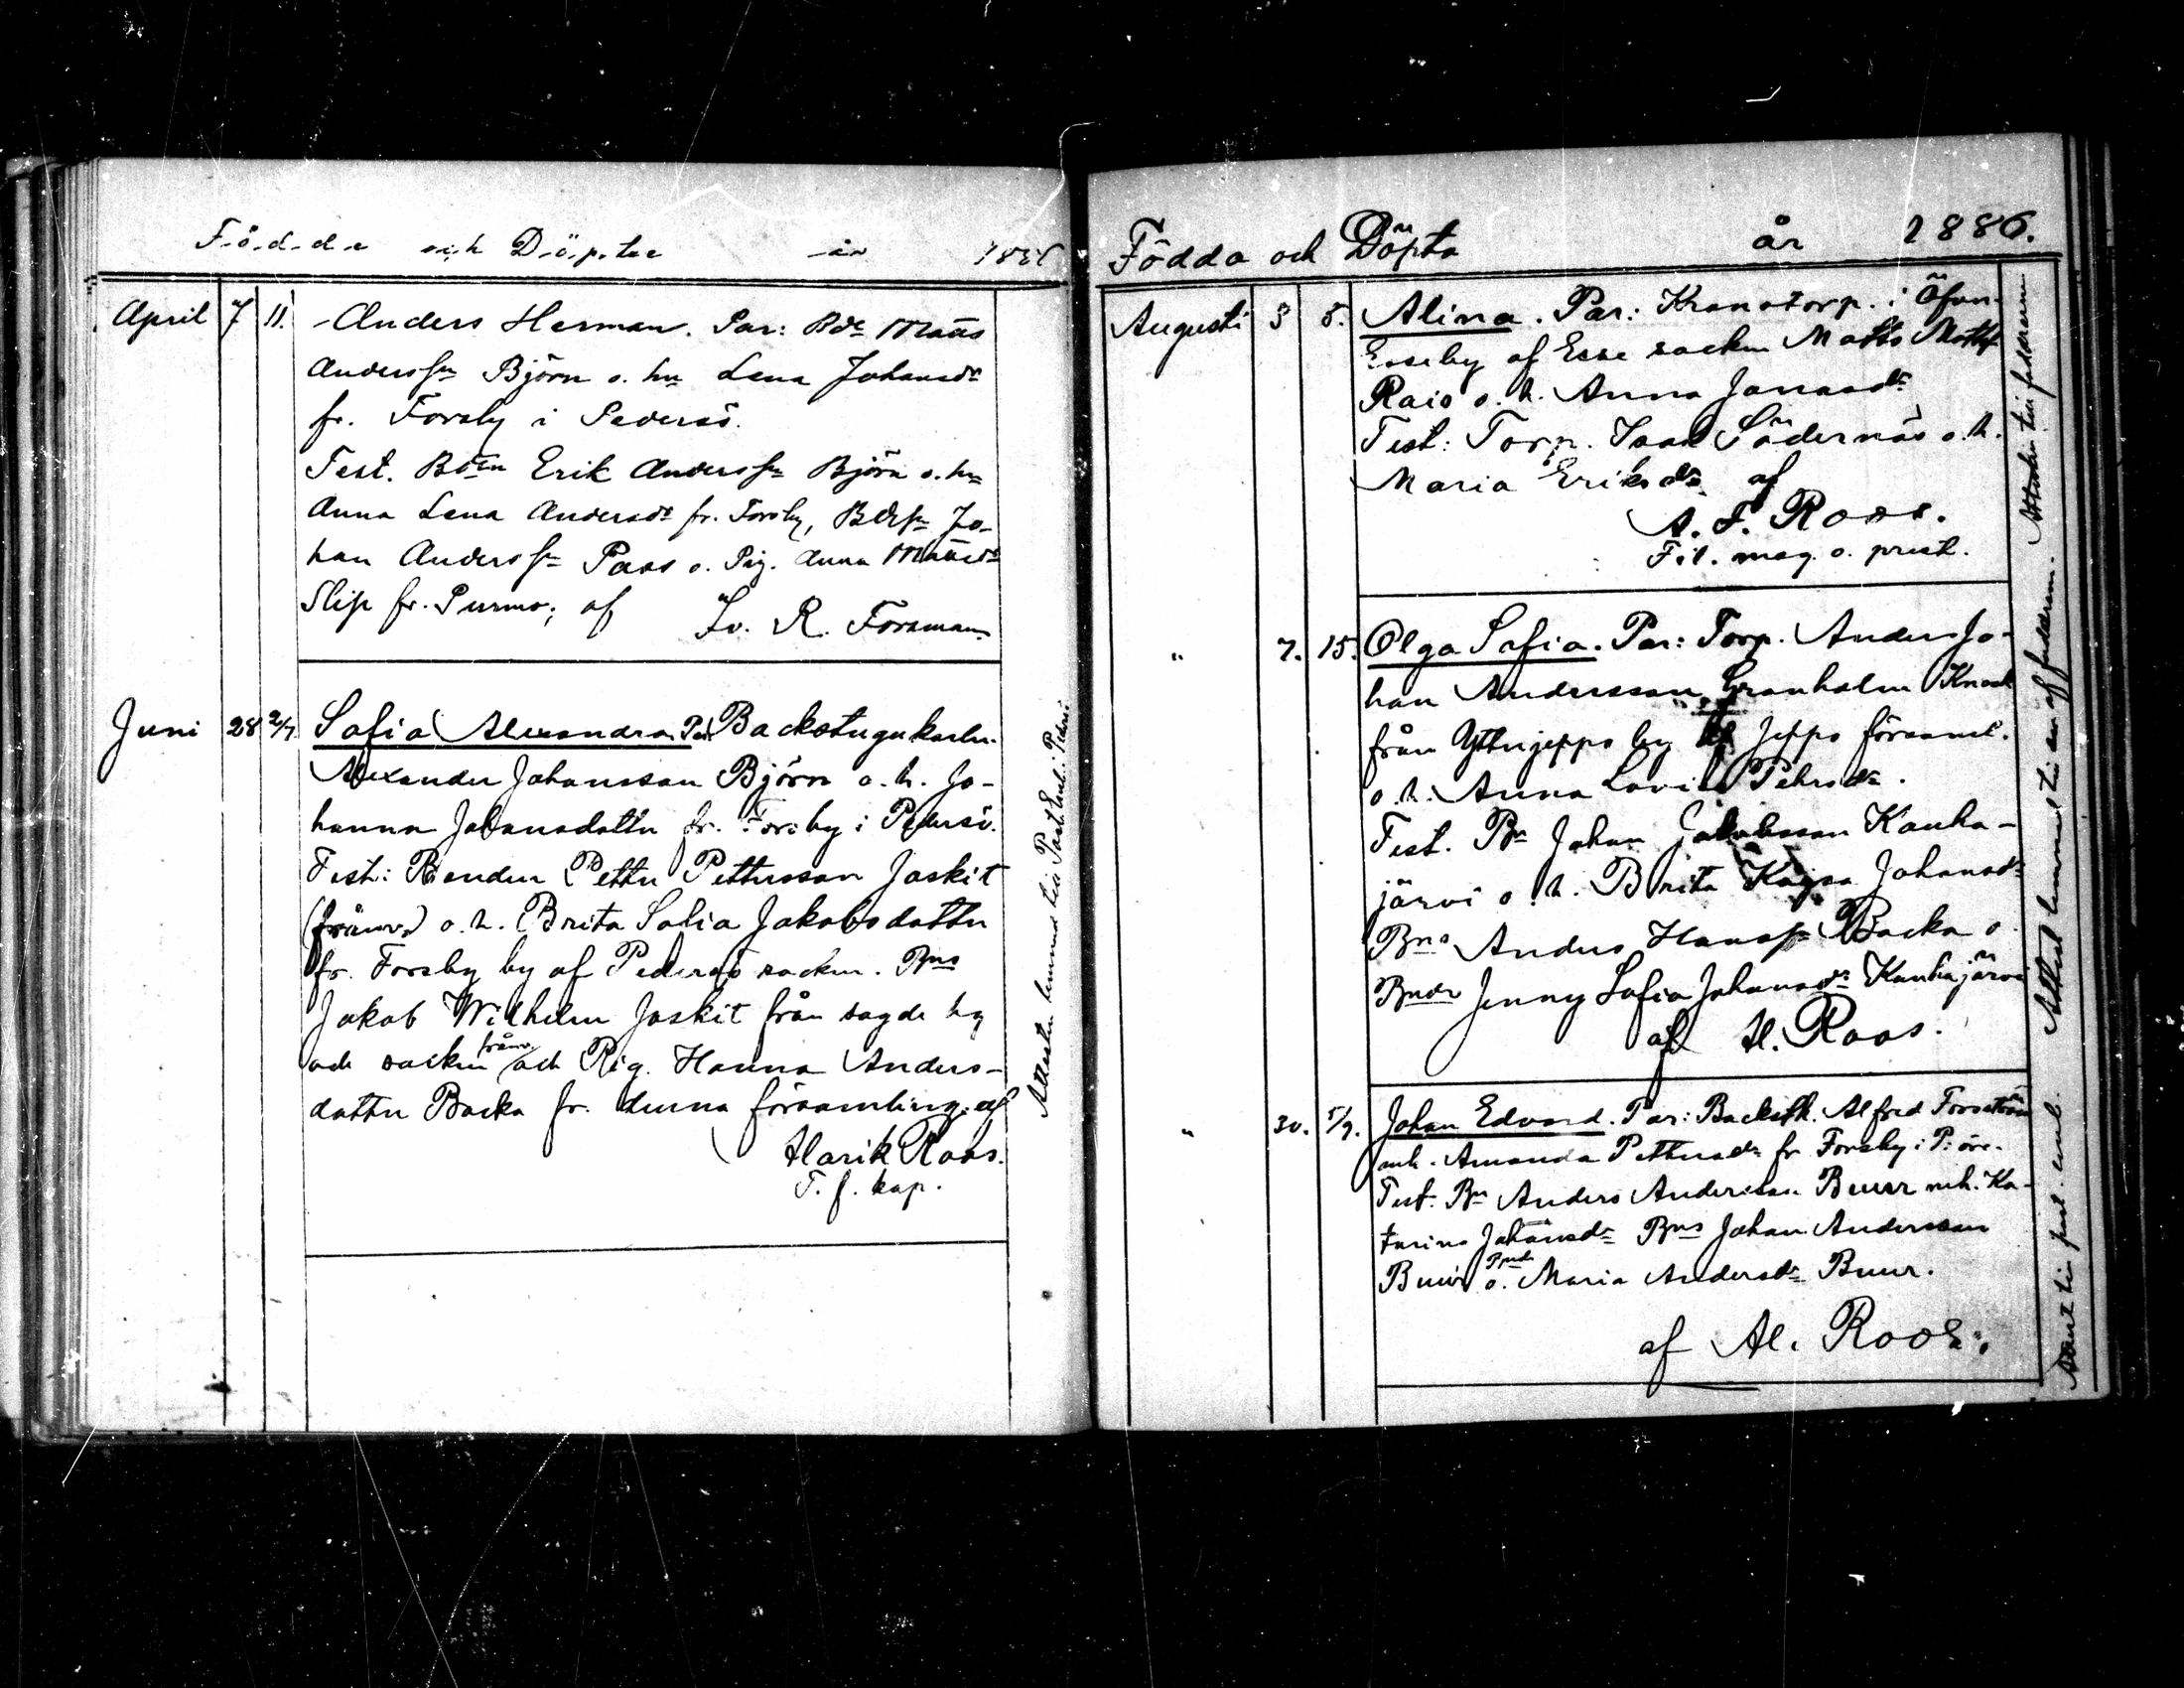 Födde och Döpte år 1886
April 7 11. Anders Herman. Par: Bde Matts
Anderssn Björn o. hu Lena Johansdr
fr. Forsby i Pedersö.
Test. Bden Erik Anderssn Björn o. hu
Anna Lena Andersdr fr. Forsby, Bdesn Jo-
han Anderssn Paas o. Pig. Anna Mattsdr
Slip fr. Purmo; af
Iv. R. Forsman
Juni 28 2/7 Sofia Alexandra. Par. Backstugukarln.
Alexander Johansson Björn o. h. Jo-
hanna Johansdotter fr. Forsby i Pedersö.
Test: Bonden Petter Pettersson Jaskit
(frånv.) o. h. Brita Sofia Jakobsdotter
fr. Forsby by af Pedersö socken. Bns
Jakob Wilhelm Jaskit från sagde by
och socken frånv. och Pig. Hanna Anders-
dotter Backa fr. denna församling. af
Alarik Roos.
T. f. kap.
Attesten lemnad till Past. Emb. i Pedersö
Födda och Döpta år 1886.
Augusti 3 5. Alina. Par: Kronotorp. i Öfver-
Esseby af Esse socken Matts Matts
Rais o. h. Anna Jonasdr
Test: Torp. Isak Södernäs o. h.
Maria Eriksdr. af
A. F. Roos.
Fil. mag. o. prest.
" 7. 15. Olga Sofia. Par: Torp. Anders Jo-
han Andersson Granholm Knock
från Ytterjeppo by af Jeppo församl.
o. h. Anna Lovisa Pehrsdr.
Test. Bn Johan Jakobsson Kauha-
järvi o. h. Brita Kajsa Johansdr
Bns Anders Hanss Backa o.
Bndr Jenny Sofia Johansdr Kauhajärvi
af Al. Roos.
" 30. 5/9. Johan Edvard. Par: Backsth. Alfred Forsström
mh. Amanda Pettersdr fr. Forsby i P:öre.
Test. Bn Anders Andersson Buur mh. Ka-
tarina Johansdr Bns Johan Andersson
Buur o. Bndr Maria Andersdr Buur.
af Al. Roos.